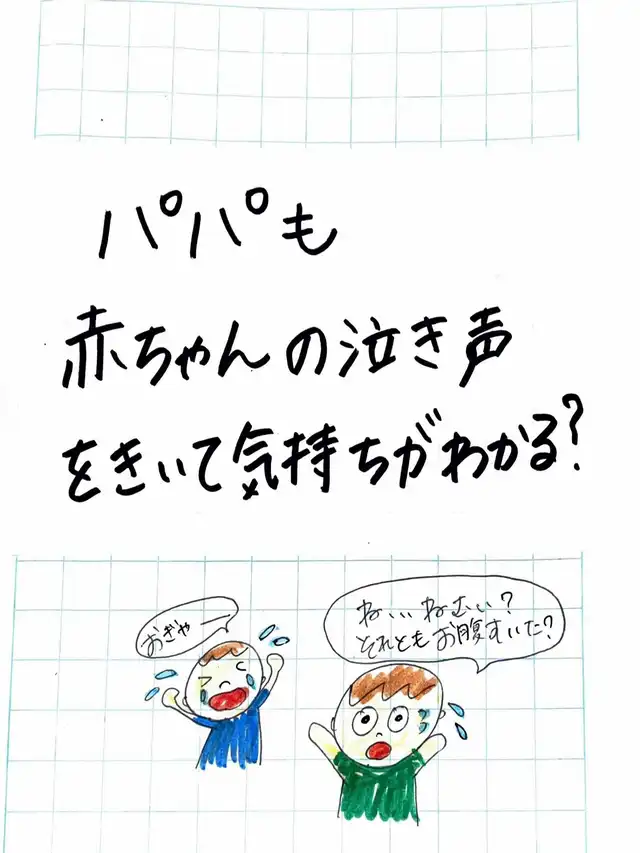 パパも
赤ちゃんの泣き声
をきいて気持ちがわかる?
おぎゃ
ね...ねむい?
それともお腹すいた?